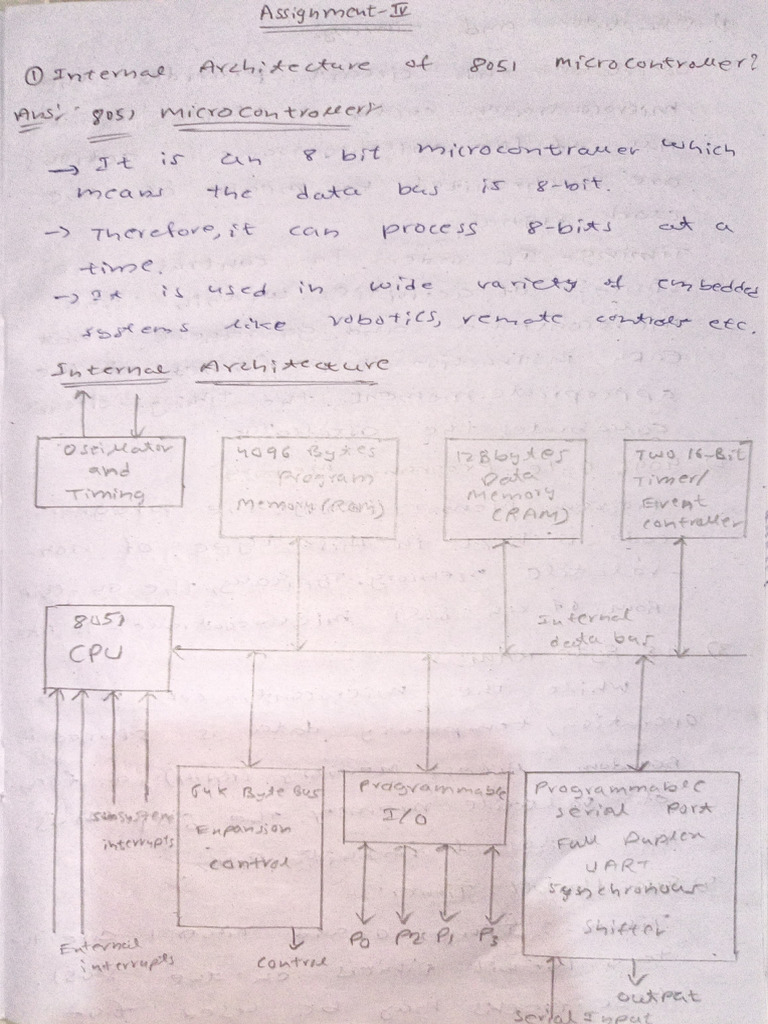 Assignment-IV
① Internal Architecture of 8051 microcontroller?
Ans: 8051 Microcontroller:
→ It is an 8-bit microcontroller which
means the data bus is 8-bit.
→ Therefore, it can process 8-bits at a
time.
→ It is used in wide variety of embedded
systems like robotics, remote controls etc.
Internal Architecture
Oscillator
and
Timing
4096 Bytes
Program
Memory (ROM)
128 bytes
Data
Memory
(RAM)
Two 16-Bit
Timer/
Event
controller
8051
CPU
Internal
data bus
subsystem
interrupts
External
interrupts
64k Byte Bus
Expansion
control
control
Programmable
I/O
P0 P2 P1 P3
Programmable
serial Port
Full Duplex
UART
Synchronous
Shifter
output
serial Input